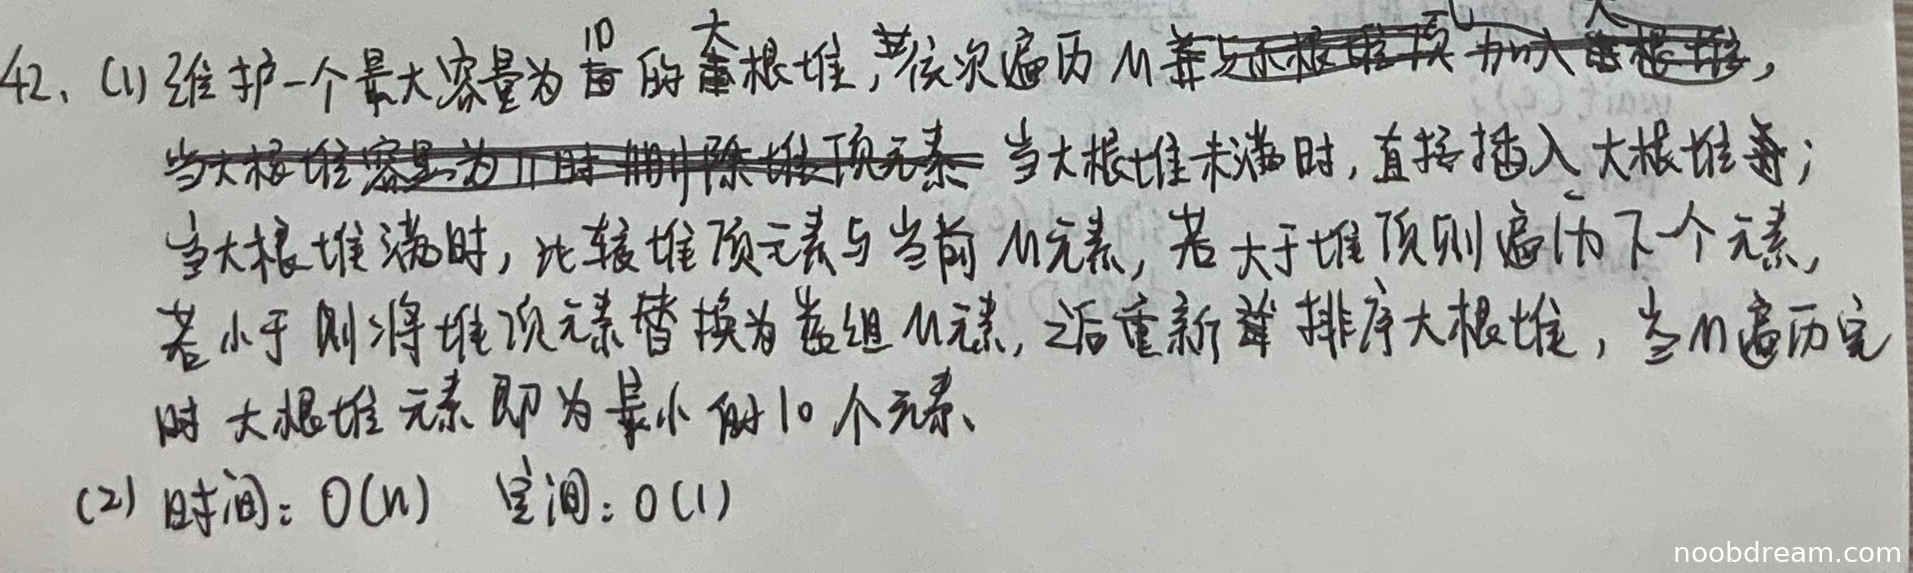 42、(1) 维护一个最大容量为10的大根堆,并依次遍历M,
当大根堆未满时,直接插入大根堆;
当大根堆满时,比较堆顶元素与当前M元素,若大于堆顶则遍历下一个元素,
若小于则将堆顶元素替换为M元素,之后重新排序大根堆,当M遍历完
时大根堆元素即为最小的10个元素、
(2) 时间:O(n) 空间:O(1)
noobdream.com